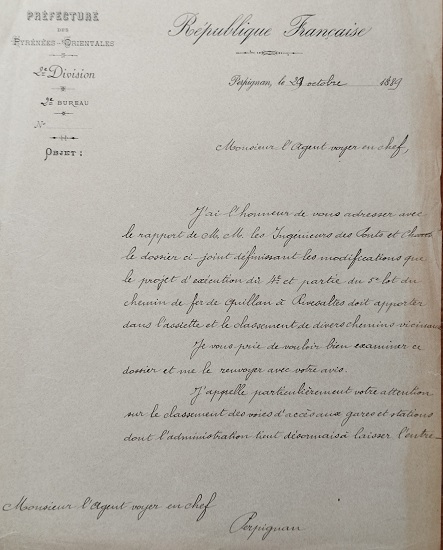 PRÉFECTURE
DES
PYRÉNÉES-ORIENTALES
2e Division
2e BUREAU
No
OBJET :
République Française
Perpignan, le octobre 1889
Monsieur l'Agent voyer en chef,
J'ai l'honneur de vous adresser avec
le rapport de M.M. les Ingénieurs des Ponts et
le dossier ci-joint définissant les modifications que
le projet d'exécution du 4e et partie du 5e lot du
chemin de fer de Quillan à Rivesaltes doit apporter
dans l'assiette et le classement de divers chemins vicinaux
Je vous prie de vouloir bien examiner ce
dossier et me le renvoyer avec votre avis.
J'appelle particulièrement votre attention
sur le classement des voies d'accès aux gares et stations
dont l'administration tient désormais à laisser l'entre-
Monsieur l'Agent voyer en chef
Perpignan